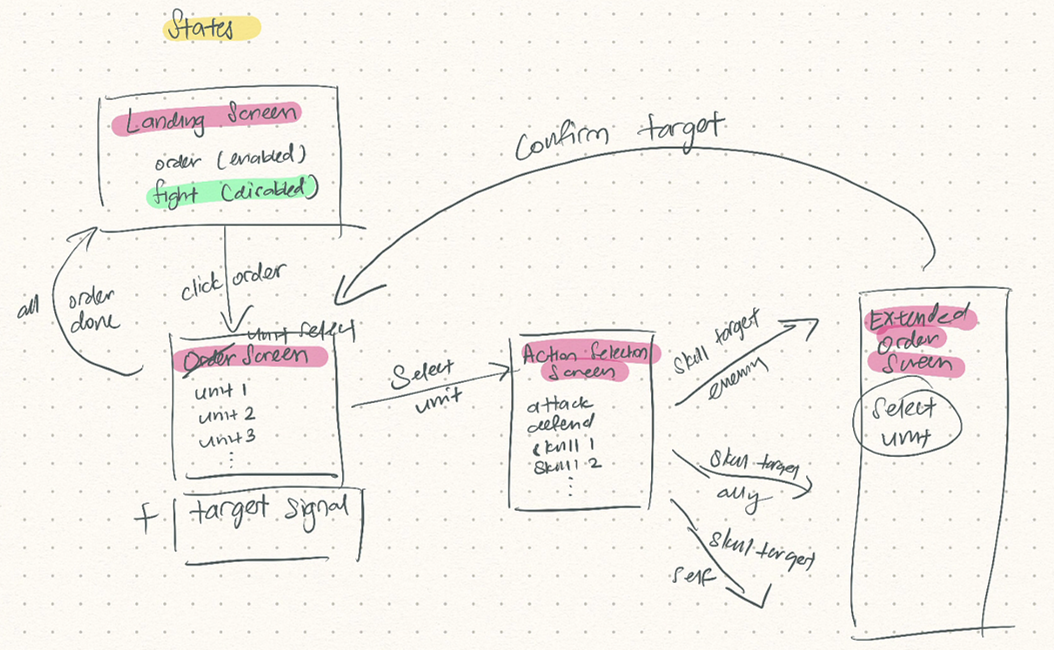 States
Landing Screen
order (enabled)
fight (disabled)
all order
done
click order
unit select
Order Screen
unit 1
unit 2
unit 3
+ target signal
Select
unit
Action Selection
Screen
attack
defend
skill 1
skill 2
Confirm target
skill target
enemy
skill target
ally
skill target
self
Extended
Order
Screen
Select
unit